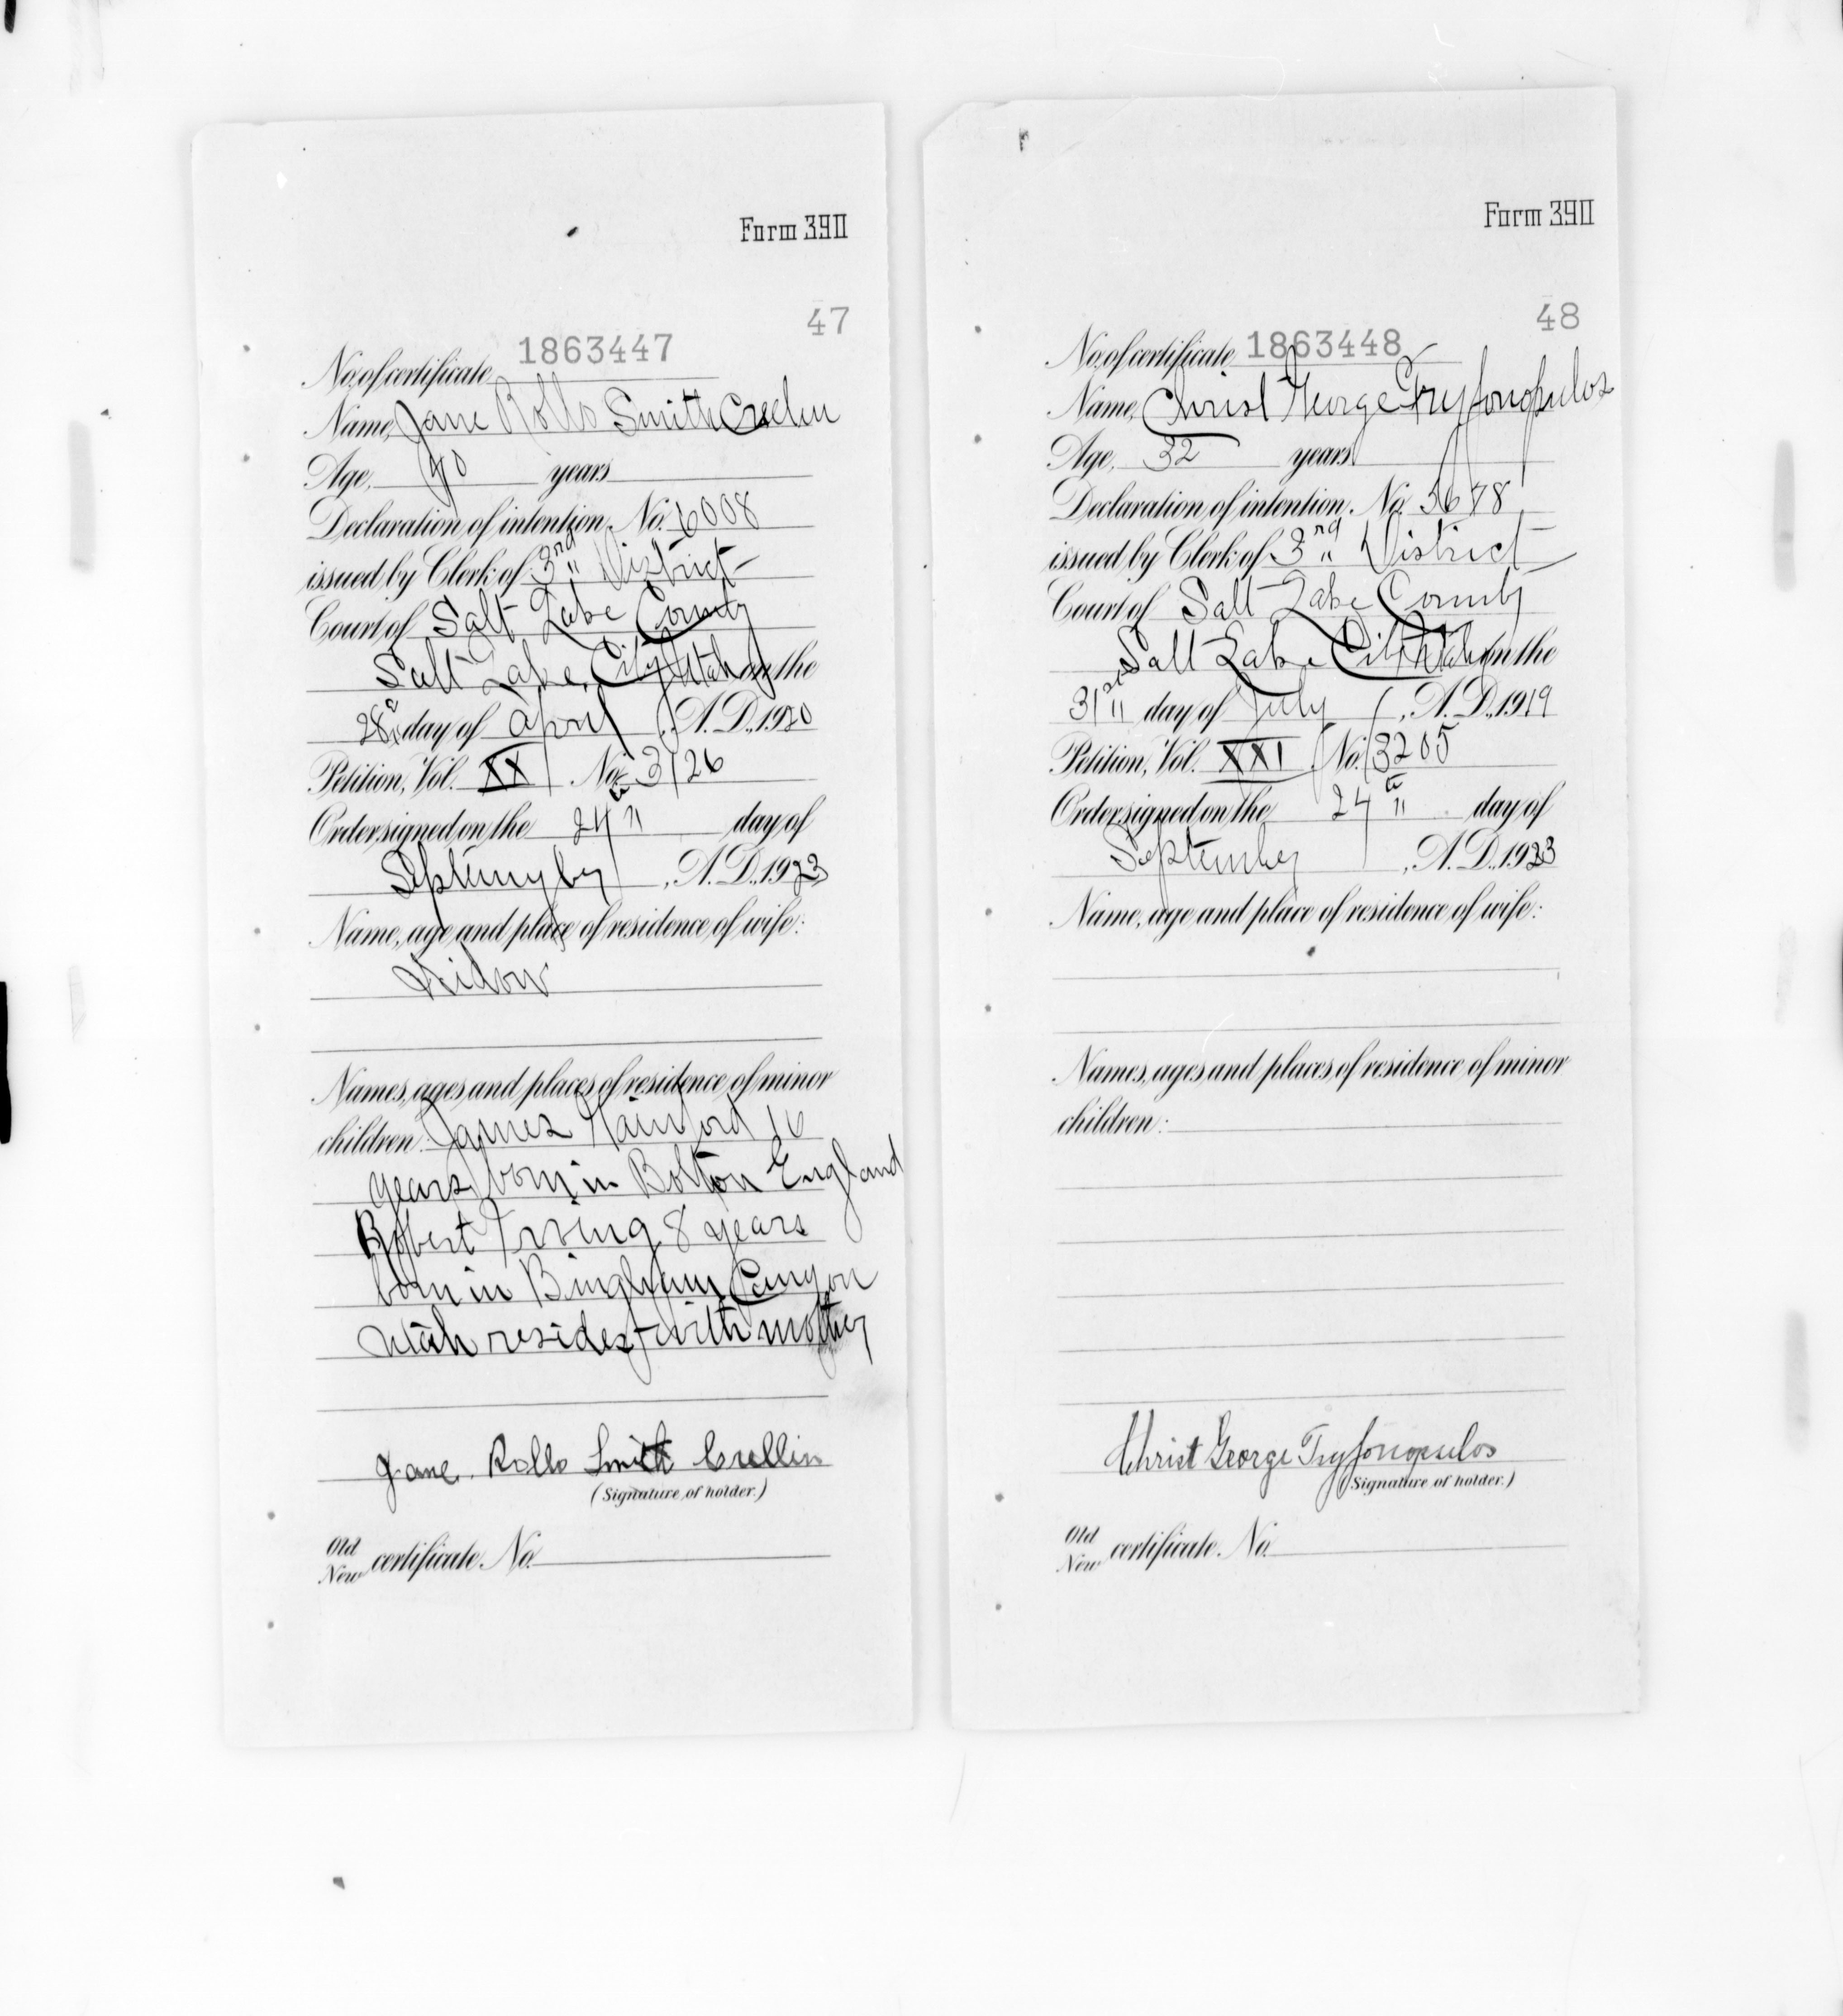 Form 390
47
No. of certificate 1863447
Name, Jane Rollo Smith Crellin
Age, 40 years
Declaration of intention, No. 6008
issued by Clerk of 3rd District
Court of Salt Lake County
Salt Lake City Utah on the
28 day of April, A.D., 1920
Petition, Vol. XX No. 3126
Order signed on the 24th day of
September, A.D., 1923
Name, age and place of residence of wife:
Widow
Names, ages and places of residence of minor
children: James 16
years born in Bolton England
Robert Irving 8 years
born in Bingham Canyon
Utah resides with mother
Jane Rollo Smith Crellin
(Signature of holder.)
Old
New certificate No.
Form 390
48
No. of certificate 1863448
Name, Christ George Tryfonopulos
Age, 32 years
Declaration of intention, No. 5678
issued by Clerk of 3rd District
Court of Salt Lake County
Salt Lake City Utah on the
31st day of July, A.D., 1919
Petition, Vol. XXI No. 3205
Order signed on the 24th day of
September, A.D., 1923
Name, age and place of residence of wife:
Names, ages and places of residence of minor
children:
Christ George Tryfonopulos
(Signature of holder.)
Old
New certificate No.